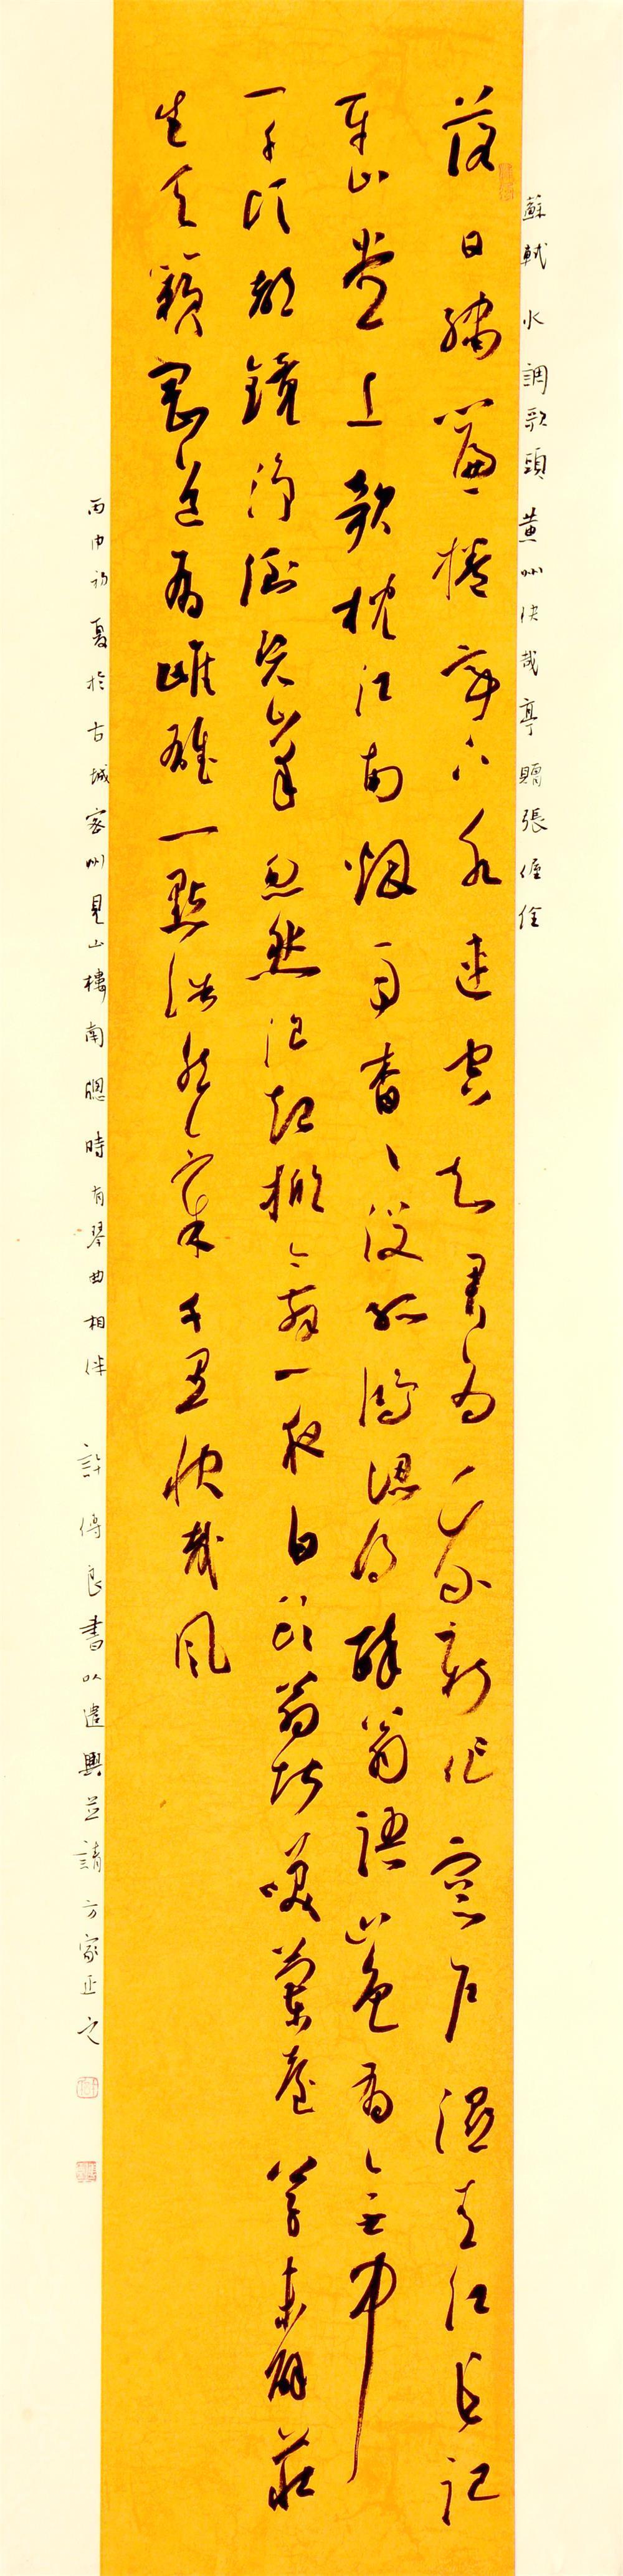 蘇軾水調歌頭黃州快哉亭贈張偓佺
落日繡簾捲亭下水連空知君為我新作窗戶濕青紅長記
平山堂上欹枕江南煙雨杳杳沒孤鴻認得醉翁語山色有無中
一千頃都鏡淨倒碧峯忽然浪起掀舞一葉白頭翁堪笑蘭臺公子未解莊
生天籟剛道有雌雄一點浩然氣千里快哉風
丙申初夏於古城密州見山樓南窗時有琴曲相伴 許傳良書以遣興並請方家正之